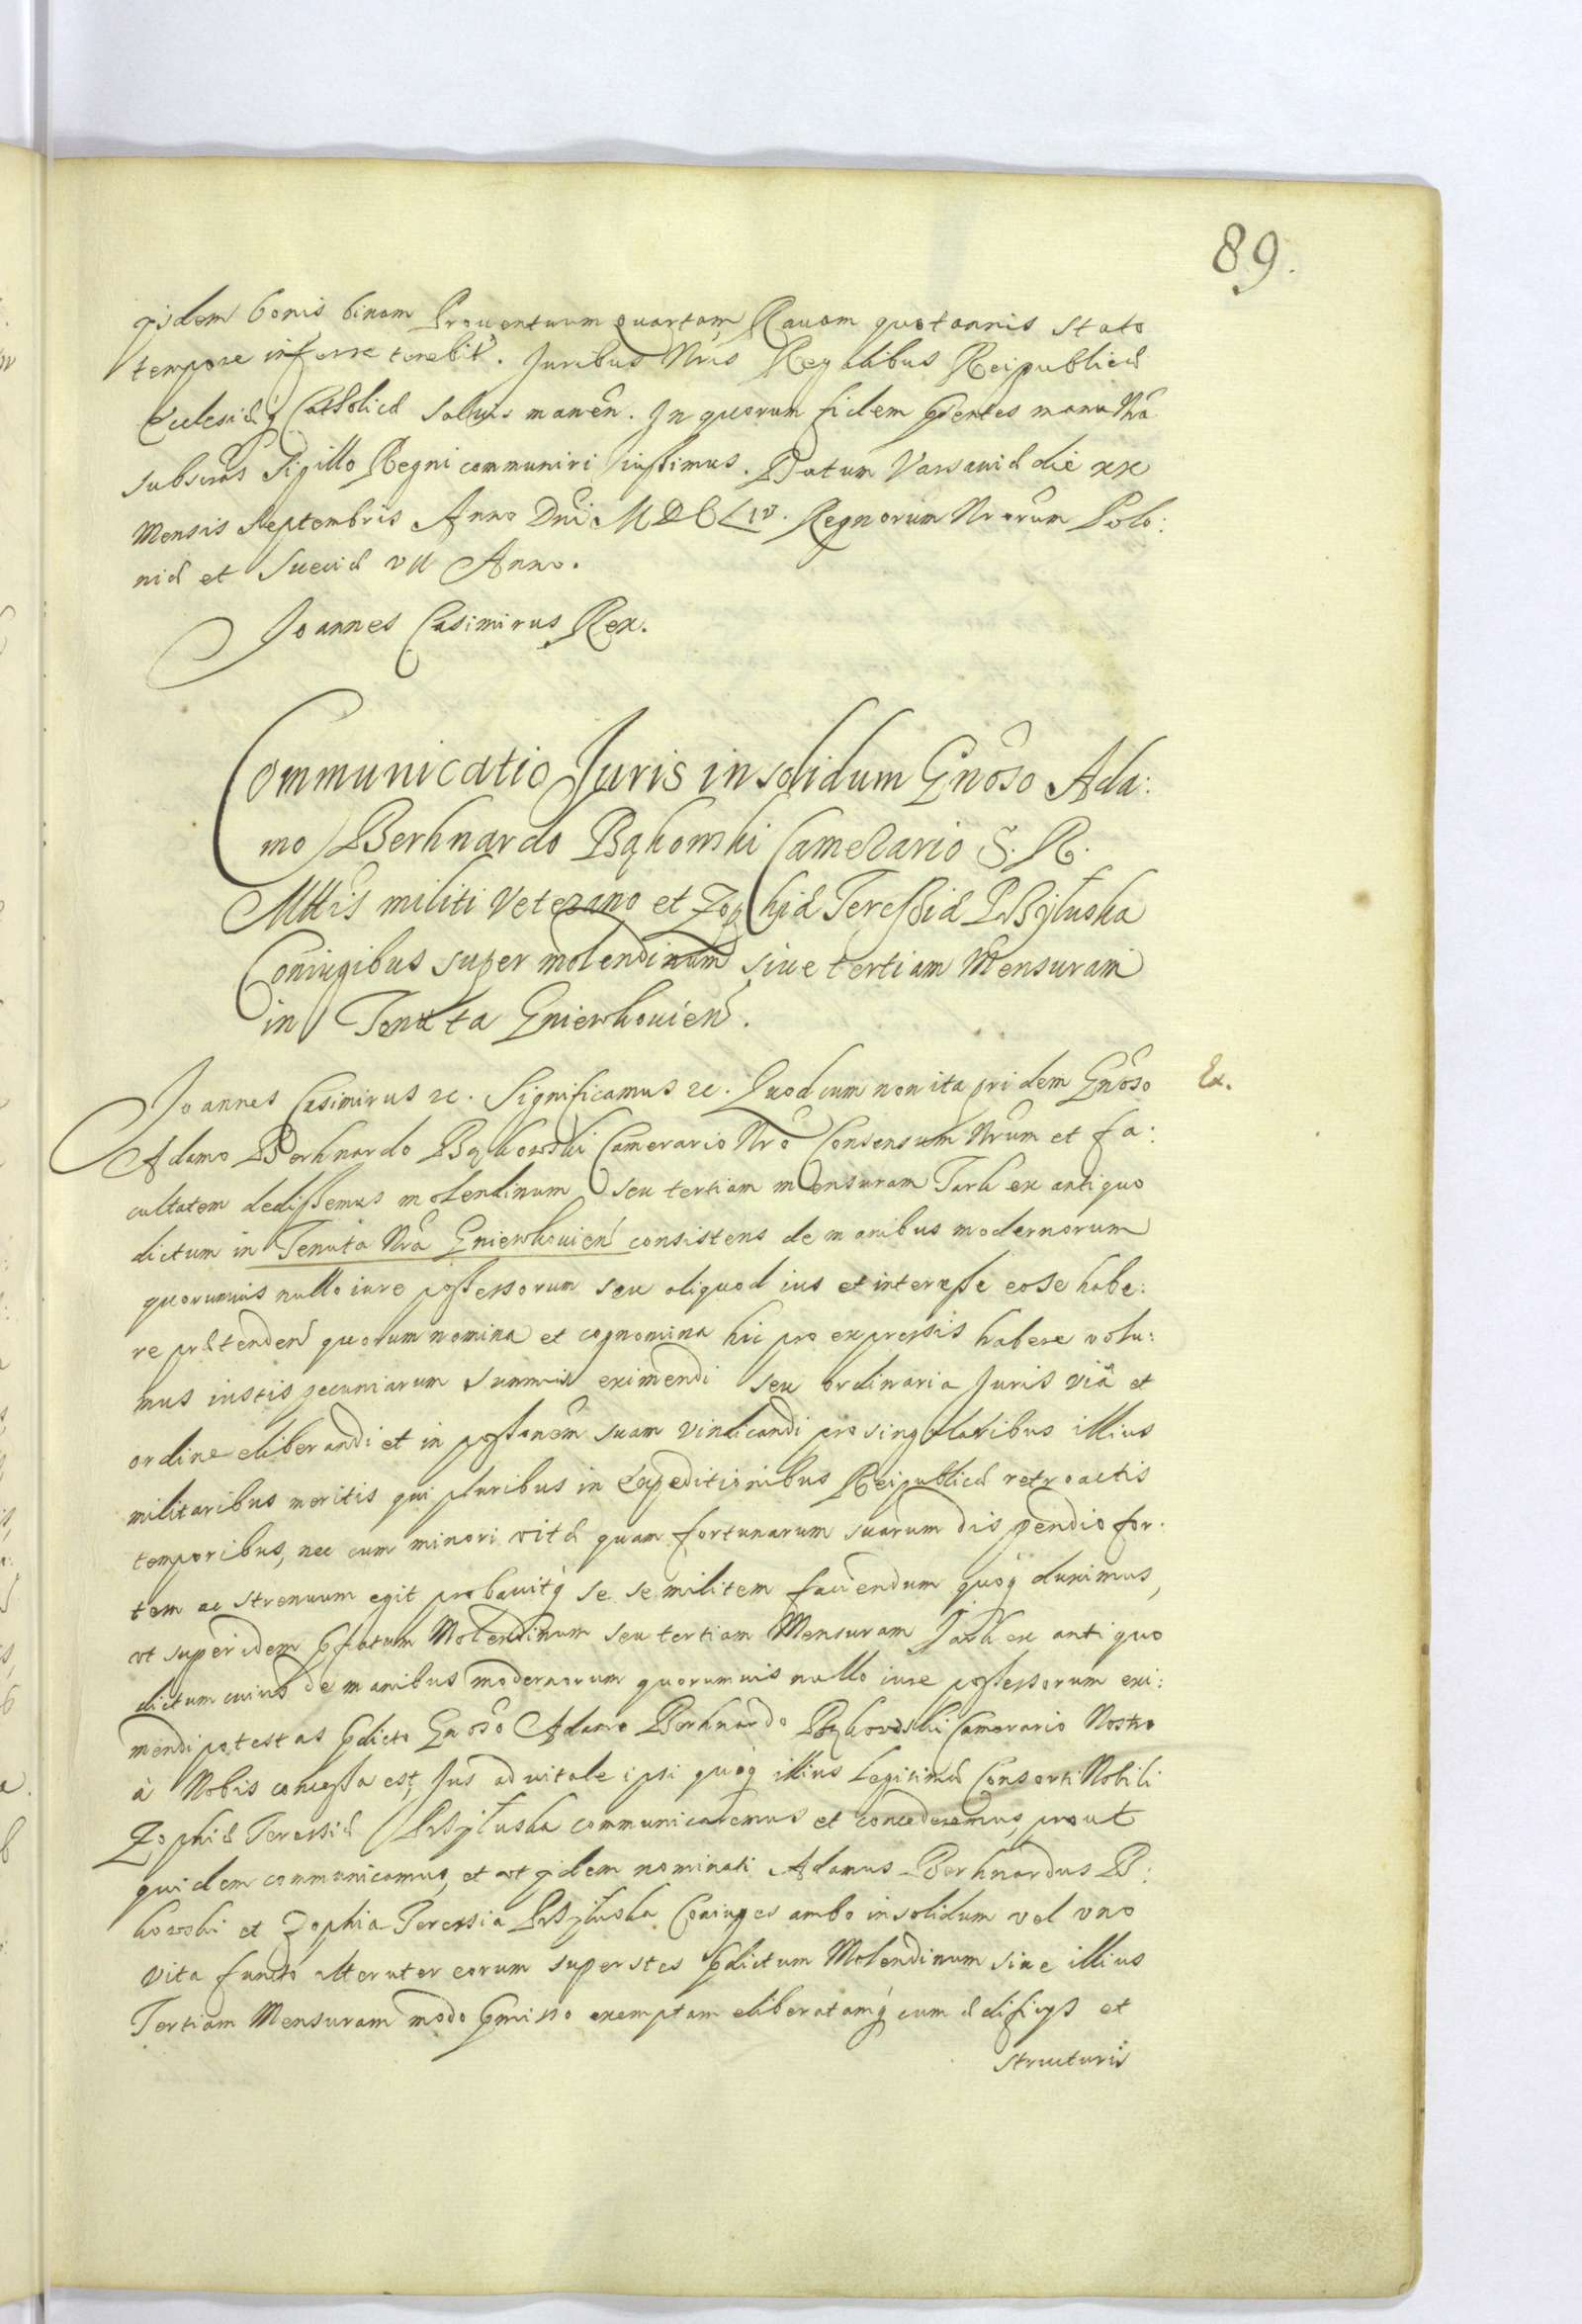 89.
ɋsdem bonis binam Prouentuum quartam Rauam quotannis stato
tempore inferre tenebit̃. Juribus Nr̃is Regalibus Reipublicæ
Ecclesiæq̃ Catholicæ saluis manen̄. In quorum fidem p̃ntes manu Nr̃a
subscr̃as Sigillo Regni communiri iussimus. Datum Varsauiæ die xx
Mensis Septembris Anno Dn̄i MDCLIV. Regnorum Nr̃orum Polo:
niæ et Sueciæ VII Anno.
Joannes Casimirus Rex.
Communicatio Juris in solidum Gn̄oso Ada:
mo Berhnardo Bąkowski Camerario S. R.
Mttis militi Veterano et Zophiæ Teressiæ Przyłuska
Coniugibus super molendinum siue tertiam Mensuram
in Tenuta Gniewkouien̄.
Joannes Casimirus &c. Significamus &c. Quod cum non ita pridem Gn̄oso
Ex.
Adamo Berhnardo Bąkowski Camerario Nr̃o Consensum Nr̃um et fa:
cultatem dedissemus molendinum seu tertiam mensuram Jark ex antiquo
dictum in Tenuta Nr̃a Gniewkouien̄ consistens de manibus modernorum
quorumuis nullo iure possessorum seu aliquod ius et interesse eo se habe:
re prætenden̄ quorum nomina et cognomina hic pro expressis habere volu:
mus iustis pecuniarum summis eximendi seu ordinaria Juris viâ et
ordine eliberandi et in possõnem suam vindicandi pro singularibus illius
militaribus meritis qui pluribus in Expeditionibus Reipublicæ retroactis
temporibus, nec cum minori vitæ quam fortunarum suarum dispendio for:
tem ac strenuum egit probauitq̃ se se militem faciendum quoq̃ duximus,
vt super idem p̃fatum Molendinum seu tertiam Mensuram Jark ex antiquo
dictum cuius de manibus modernorum quorumuis nullo iure possessorum exi:
mendi potestas p̃dicto Gn̄oso Adamo Berhnardo Bąkowski Camerario Nostro
à Nobis concessa est, Jus aduitale ipsi quoq̃ illius Legitimæ Consorti Nobili
Zophiæ Teressiæ Przyłuska communicaremus et concederemus, prout
quidem communicamus, et vt ɋidem nominati Adamus Berhnardus B:
kowski et Zophia Teressia Przyłuska Coniuges ambo in solidum vel vno
vita functo alteruter eorum superstes p̃dictum Molendinum siue illius
Tertiam Mensuram modo p̃misso exemptam eliberatamq̃ cum ædificys et
structuris